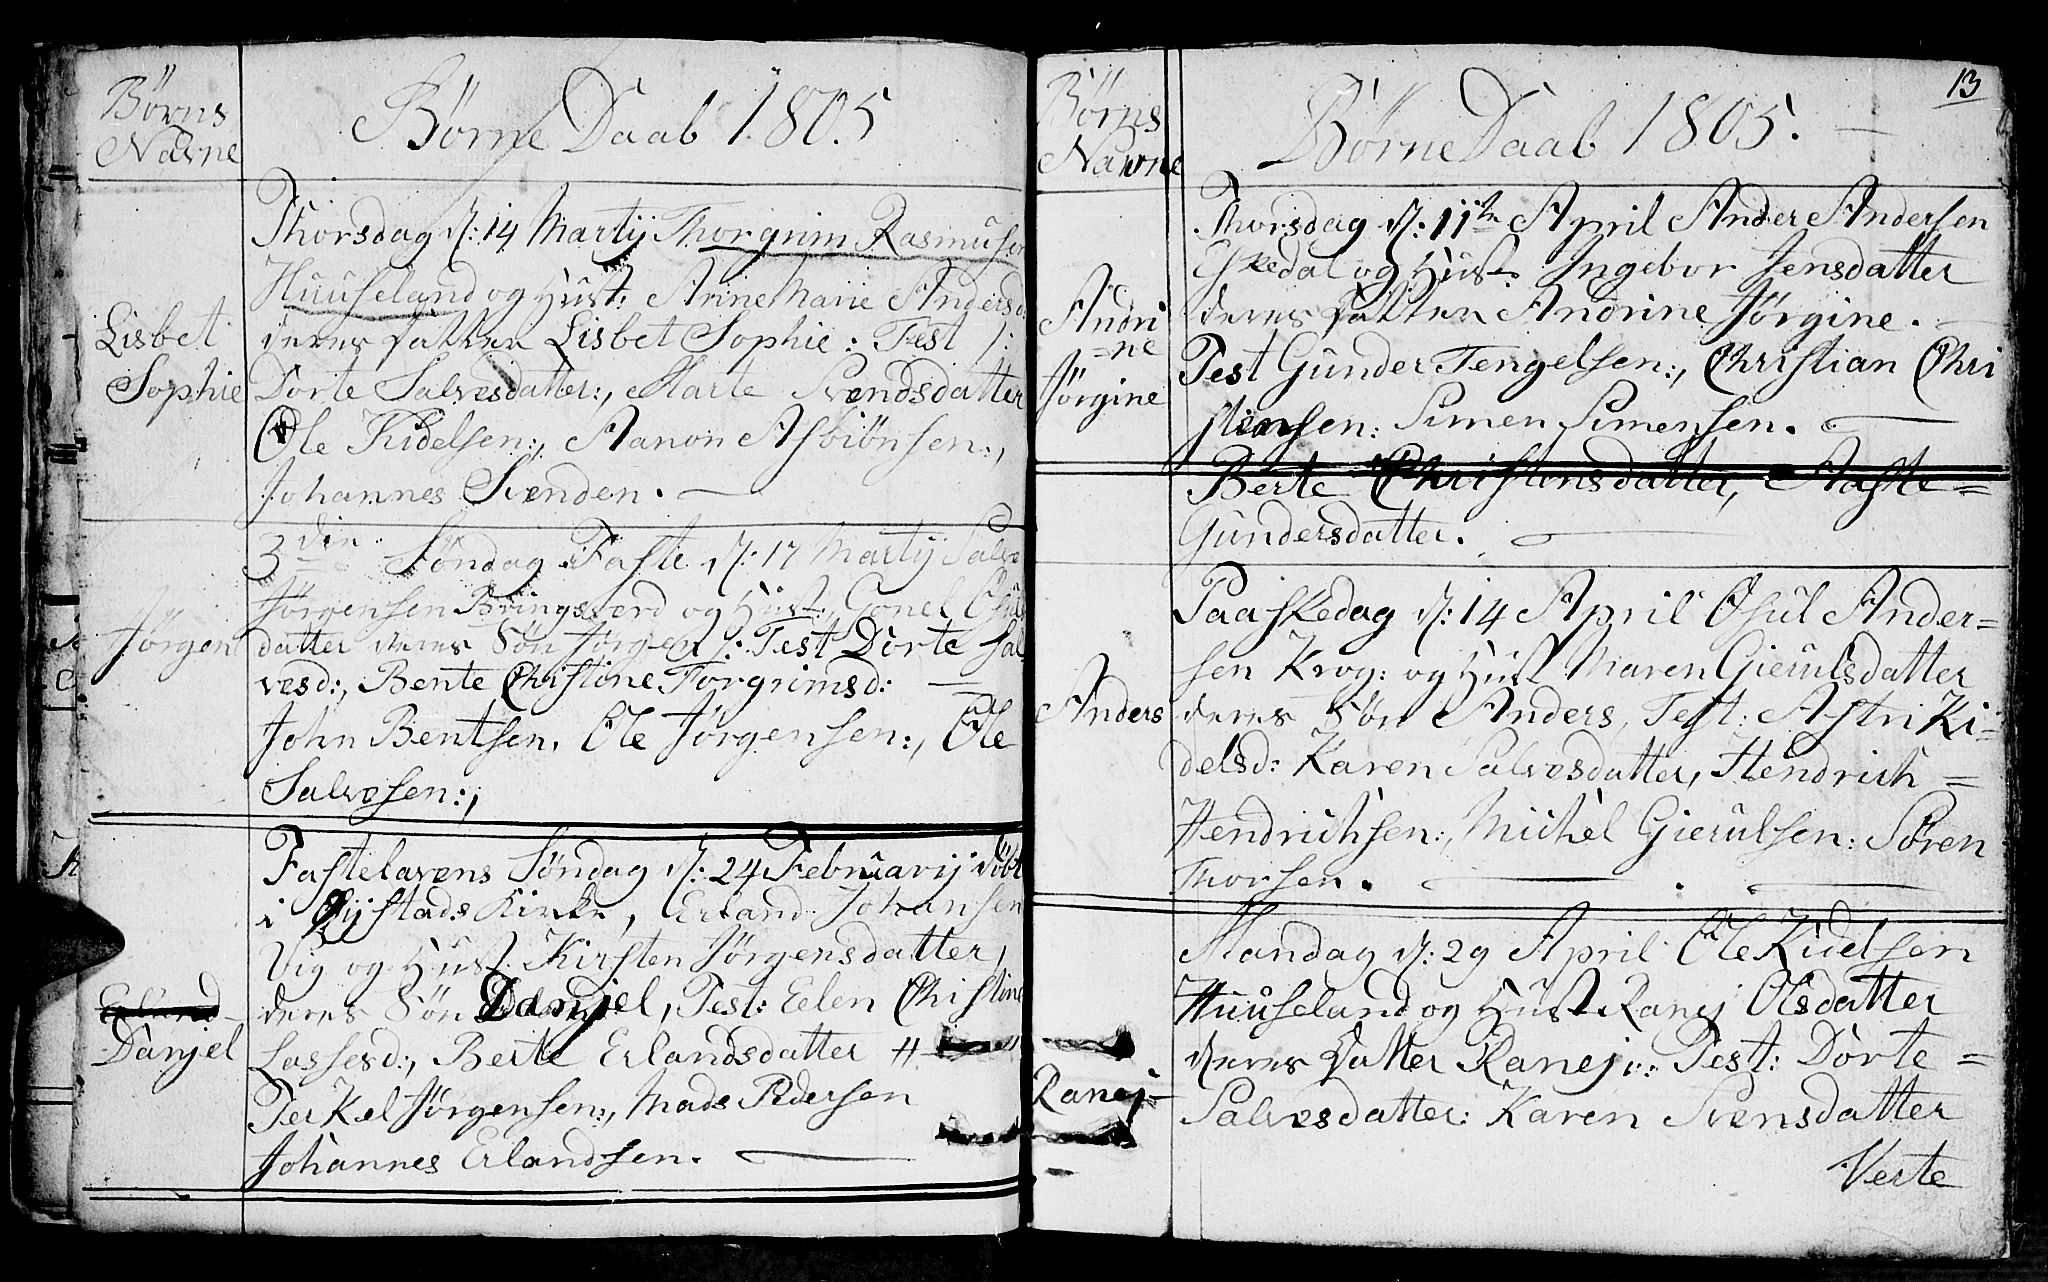 Børns
Navne
Børne Daab 1805
Thorsdag d: 14 Martij Thorgrim Rasmuse
Huuseland og Hust: Anne Marie Andersd:
deres Datter Lisbet Sophie: Test /:
Lisbet
Sophie
Dorte Salvesdatter:, Marte Svendsdatter
Ole Kidelsen:, Aanon Asbiönsen:,
Johannes Svenden.
3die Søndag i Faste d: 17 Martij Salve
Jørgensen Bringsverd og Hust: Gonel Osuls
Jørgen
datter deres Sön Jørgen /: Test Dorte Sal
vesd:, Bente Christine Torgrimsd:
John Bentsen, Ole Jørgensen:, Ole
Salvesen:,
Fastelavens Søndag d: 24 Februarij döbt
i Fijstads Kirke, Erland Johansen
Vig og Hust: Kirsten Jørgensdatter,
deres Sön Danjel, Test: Eelen Christine
Erland
Danjel
Lassesd:, Berte Erlandsdatter
Terkel Jørgensen:, Mads Pedersen
Johannes Erlandsen.
13
Børns
Navne
Børne Daab 1805.
Thorsdag d: 11te April Ander Andersen
Eskedal og Hust: Ingebor Jensdatter
deres Datter Andrine Jørgine.
Andri
=ne
Jørgine
Test Gunder Tengelsen:, Christian Chri
stensen: Simen Simensen.
Berte Christensdatter, Aaste=
Gundersdatter.
Paaskedag d: 14 April Osul Ander=
sen Krog: og Hust Maren Gieruls datter
Anders
deres Sön Anders, Test: Astri Ki=
delsd: Karen Salvesdatter, Hendrich=
Hendrichsen:, Michel Gierulsen: Søren
Thorsen.
Mandag d: 29 April Ole Kidelsen
Huuseland og Hust Ranej Olsdatter
deres Datter Ranej:: Test: Dorte=
Ranej
Salvesdatter: Karen Svensdatter
Verte